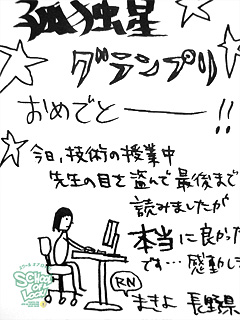 孤独星
グランプリ
おめでとーー!!
今日、技術の授業中
先生の目を盗んで最後まで
読みましたが
本当に良かった
です…感動し
RN
まきよ 長野県
SCHOOL
OF
LOCK!